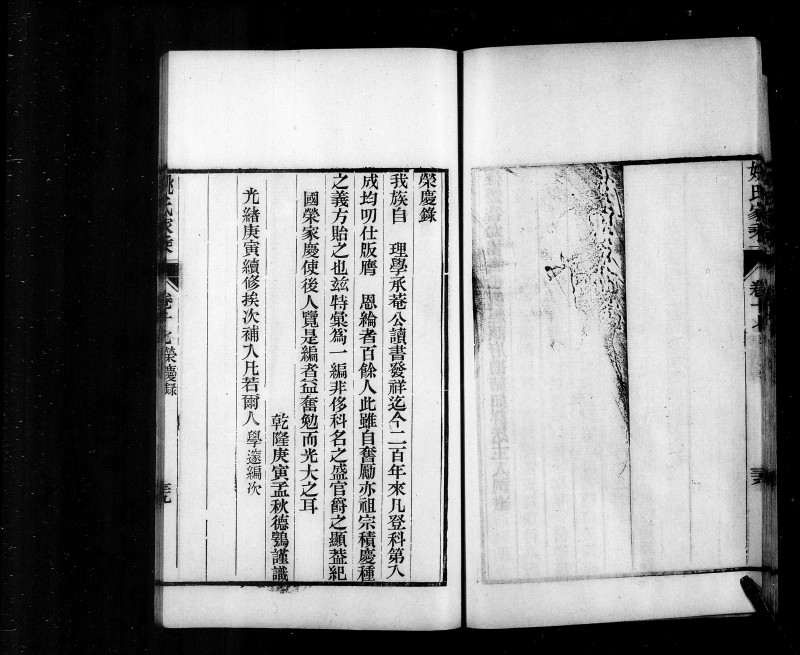 姚氏家乘
卷十七
榮慶錄
我族自　理學承菴公讀書發祥迄今二百年來凡登科第入
成均叨仕版膺　恩綸者百餘人此雖自奮勵亦祖宗積慶種
之義方貽之也玆特彙爲一編非侈科名之盛官爵之顯葢紀
國榮家慶使後人覽是編者益奮勉而光大之耳
乾隆庚寅孟秋德鸮謹識
光緒庚寅續修挨次補入凡若爾人　學邃編次
姚氏家乘
卷十七　榮慶錄